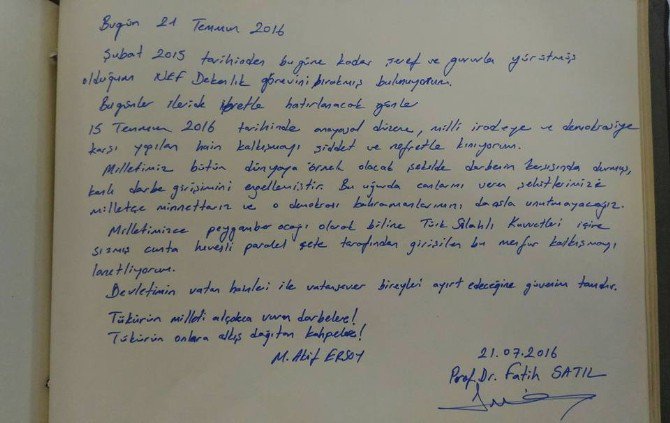 Bugün 21 Temmuz 2016
Şubat 2015 tarihinden bugüne kadar şeref ve gururla yürütmüş
olduğum NEF Dekanlık görevini bırakmış bulunuyorum.
Bugünler ileride ibretle hatırlanacak günler
15 Temmuz 2016 tarihinde anayasal düzene, milli iradeye ve demokrasiye
karşı yapılan hain kalkışmayı şiddet ve nefretle kınıyorum.
Milletimiz bütün dünyaya örnek olacak şekilde darbenin karşısında durmuş,
kanlı darbe girişimini engellemiştir. Bu uğurda canlarını veren şehitlerimize
milletçe minnettarız ve o demokrasi kahramanlarımızı da asla unutmayacağız.
Milletimizce peygamber ocağı olarak biline Türk Silahlı Kuvvetleri içine
sızmış cunta hevesli paralel çete tarafından girişilen bu menfur kalkışmayı
lanetliyorum.
Devletimin vatan hainleri ile vatansever bireyleri ayırt edeceğine güvenim tamdır.
Tükürün milleti alçakça vuran darbelere!
Tükürün onlara alkış dağıtan kahpelere!
M. Akif ERSOY
21.07.2016
Prof. Dr. Fatih SATIL